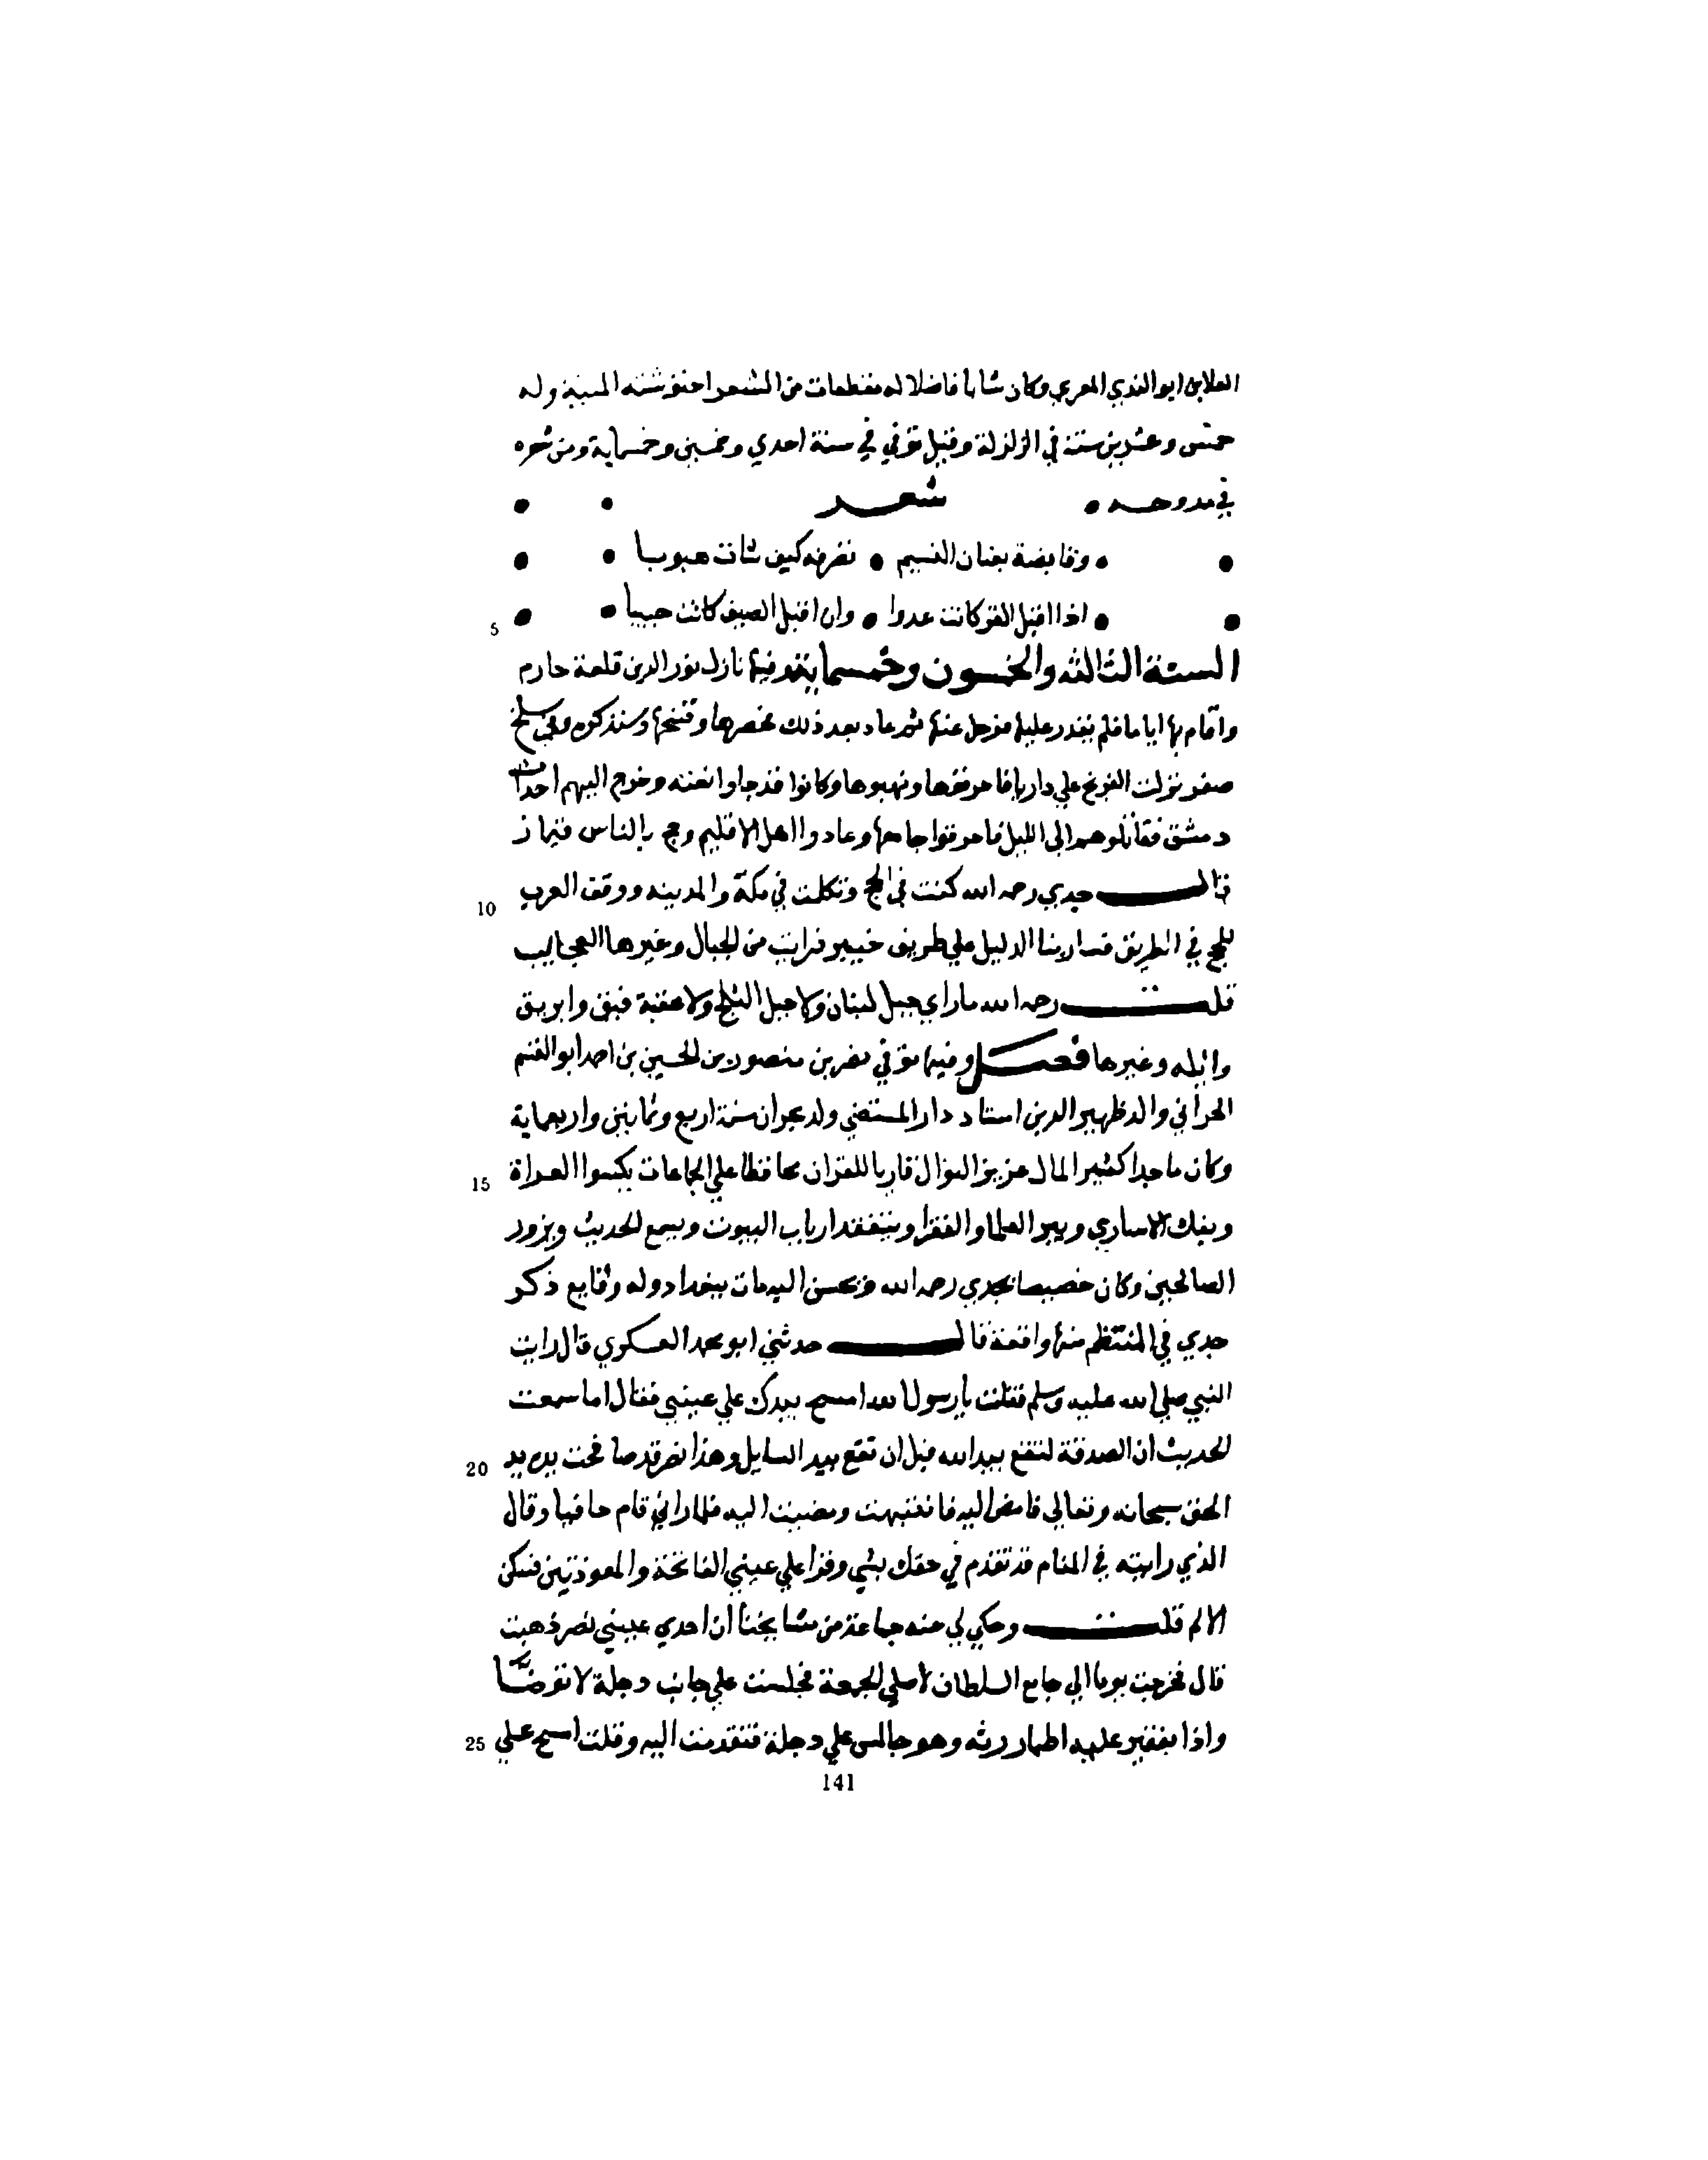 العلا بن ابو الندي المعري وكان شابا فاضلا له مقطعات من الشعر اخترمته المنية وله
خمس وعشرين سنة في الزلزلة وقيل توفي في سنة احدي وخمسين وخمسماية ومن شعره
في مدوحه • شعر • •
• • وقابضة بعنان النسيم • تصرفه كيف شات هبوبا • •
• • اذا اقبل القر كانت عدوا • وان اقبل الصيف كانت حبيبا • •
5
السنة الثالثه والخمسون وخمسماية وفيها نازل نور الدين قلعة حارم
واقام بها اياما فلم يقدر عليها فرحل عنها ثم عاد بعد ذلك فحصرها وفتحها وسنذكره وفي سلخ
صفر نزلت الفرنج علي داريا فاحرقوها ونهبوها وكانوا قد جاوا بغتة وخرج اليهم احداث
دمشق فقاتلوهم الى الليل فاحرقوا جامعها وعادوا اهل الاقليم وحج بالناس قيماز
قال جدي رحمه الله كنت في الحج وتكلمت في مكة والمدينه ووقف العرب
10
للحج في الطريق فسار بنا الدليل علي طريق خيبر فرايت من الجبال وغيرها العجايب
قلت رحمه الله ما راي جبل لبنان ولا جبل الثلج ولا عقبة فيق وابريق
وايله وغيرها فصل وفيها توفي نصر بن منصور بن الحسين بن احمد ابو القسم
الحراني والد ظهير الدين استاد دار المستضي ولد بحران سنة اربع وثمانين واربعماية
وكان ماجدا كثير المال عزيز النوال قاريا للقران محافظا علي الجماعات يكسوا العراة
15
ويفك الاساري ويبر العلما والفقرا ويتفقد ارباب البيوت ويسمع الحديث ويزور
الصالحين وكان خصيصا بجدي رحمه الله ويحسن اليه مات ببغداد وله وقايع ذكر
جدي في المنتظم منها واقعة قال حدثني ابو محمد العسكري قال رايت
النبي صلي الله عليه وسلم فقلت يا رسول الله امسح بيدك علي عيني فقال اما سمعت
الحديث ان الصدقة لتقع بيد الله قبل ان تقع بيد السايل وهذا نصر قد صافحت يده يد
20
الحق سبحانه وتعالي فامض اليه فانتبهت ومضيت اليه فلما راني قام حافيا وقال
الذي رايته في المنام قد تقدم في حقك بشي وقرا علي عيني الفاتحة والمعوذتين فسكن
الالم قلت وحكي لي عنه جماعة من مشايخنا ان احدي عيني نصر ذهبت
قال فخرجت يوما الي جامع السلطان لاصلي الجمعة فجلست علي جانب دجلة لاتوضا
واذا بفقير عليه اطمار رثه وهو جالس علي دجلة فتقدمت اليه وقلت امسح علي
25
141